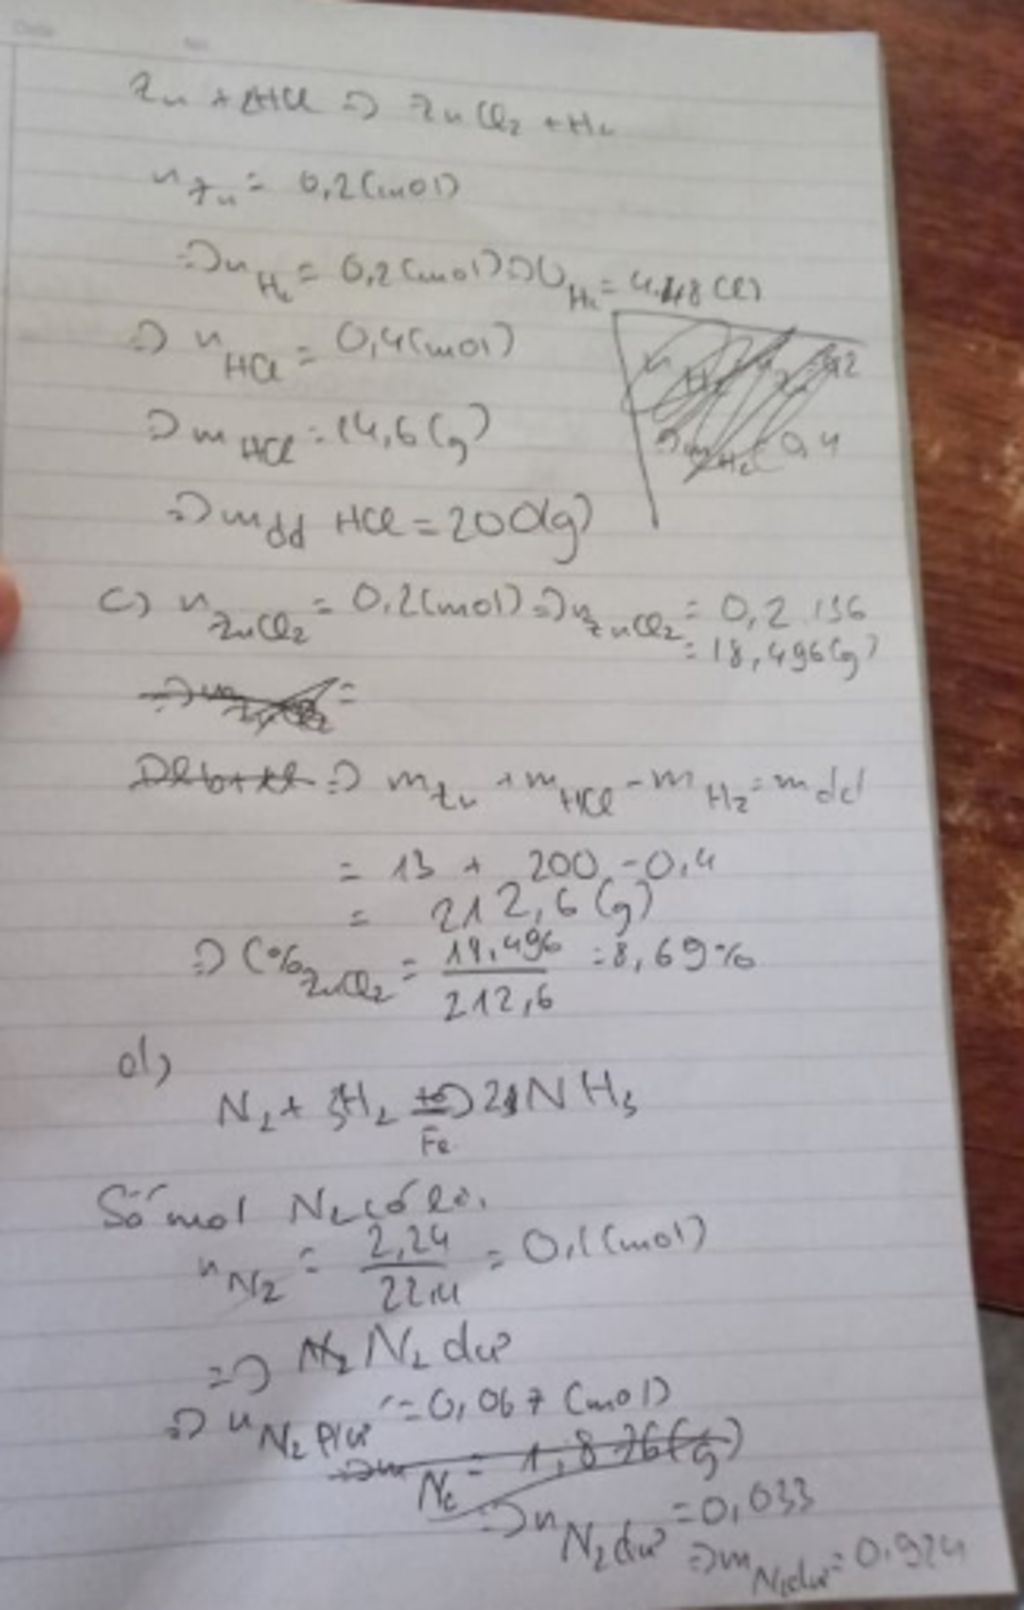 Zn + 2HCl => ZnCl2 + H2
nZn = 0,2(mol)
=> nH2 = 0,2(mol) => VH2 = 4.48(l)
=> nHCl = 0,4(mol)
=> mHCl = 14,6(g)
0,4
=> mdd HCl = 200(g)
c) nZnCl2 = 0.2(mol) => nZnCl2 = 0,2.136
= 18,496(g)
=
=> mZn + mHCl - mH2 = mdd
= 13 + 200 - 0,4
= 212,6 (g)
=> C%ZnCl2 = 18,496 / 212,6 = 8,69%
d)
N2 + 3H2 => 2NH3
Fe
Số mol N2 có là.
nN2 = 2,24 / 22,4 = 0,1(mol)
=> N2 dư
=> nN2 p/ư = 0,067 (mol)
N2 = 1,876(g)
=> nN2 dư = 0,033
=> mN2 dư = 0.924